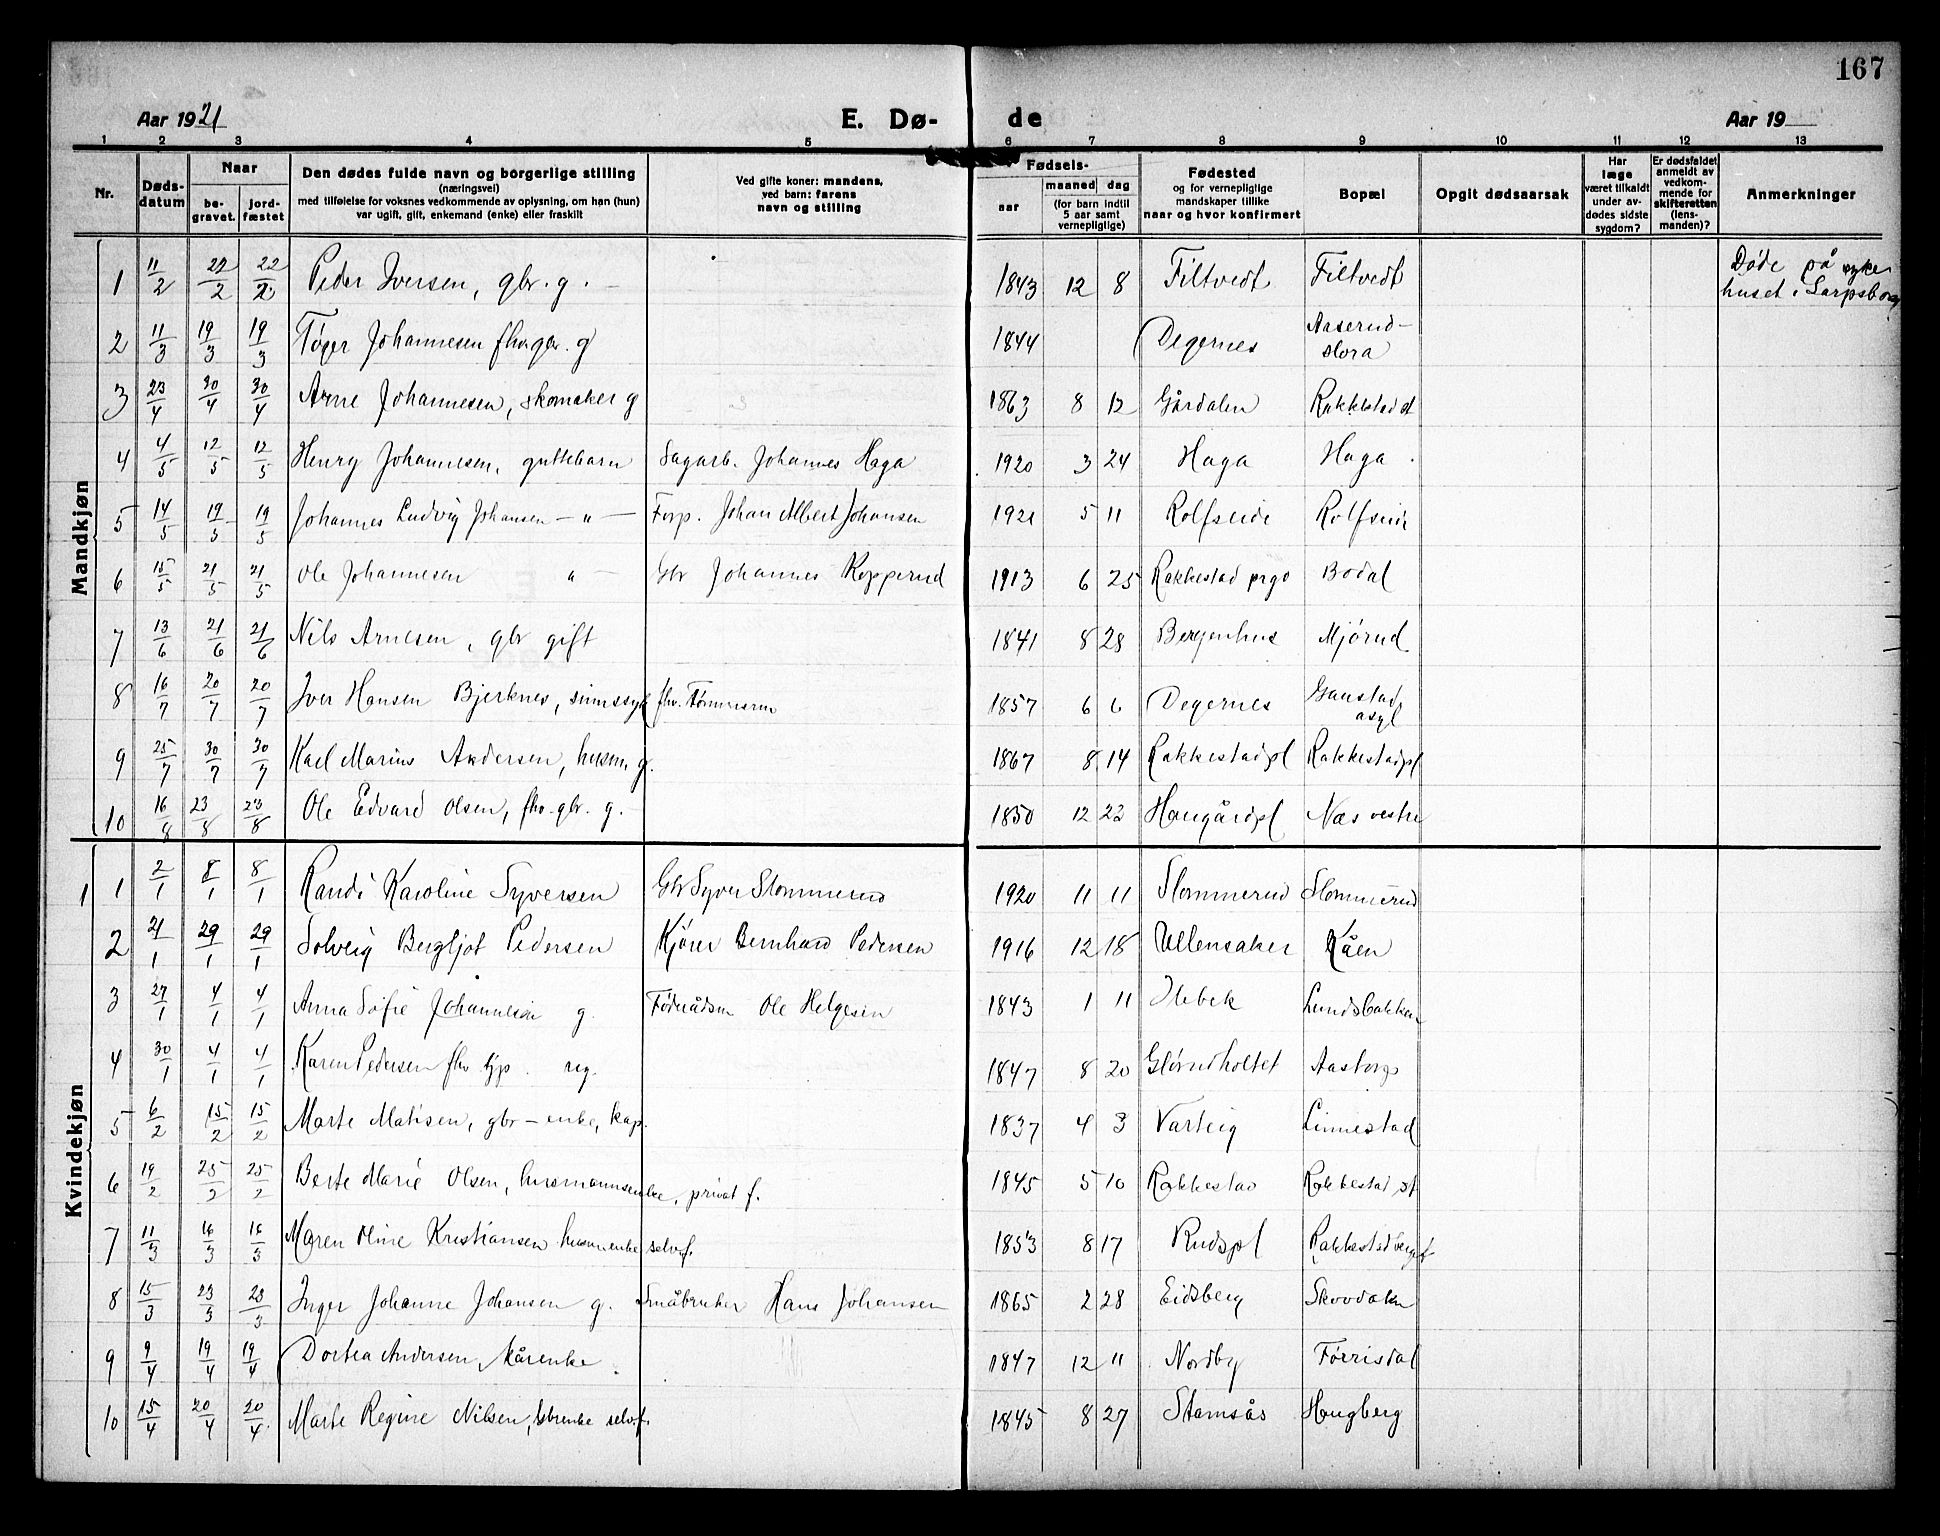 167
Aar 1921 E. Dø- de Aar 19
1 2 3 4 5 6 7 8 9 10 11 12 13
Nr. Døds-datum Naar be-gravet. jord-fæstet Den dødes fulde navn og borgerlige stilling (næringsvei) med tilføielse for voksnes vedkommende av oplysning, om han (hun) var ugift, gift, enkemand (enke) eller fraskilt Ved gifte koner: mandens, ved barn: farens navn og stilling Fødsels- aar maaned dag (for barn indtil 5 aar samt vernepligtige) Fødested og for vernepligtige mandskaper tillike naar og hvor konfirmert Bopæl Opgit dødsaarsak Har læge været tilkaldt under av-dødes sidste sygdom? Er dødsfaldet anmeldt av vedkom-mende for skifteretten (lens-manden)? Anmerkninger
Mandkjøn
1 11/2 22/2 22/2 Peder Iversen, gbr. g. 1843 12 8 Filtvedt Filtvedt Døde på syke huset i Sarpsborg
2 11/3 19/3 19/3 Tøger Johannesen fhv. gbr. g 1844 Degernes Aaserud-stora
3 23/4 30/4 30/4 Arne Johannesen, skomaker g 1863 8 12 Gårdalen Rakkestad st
4 4/5 12/5 12/5 Henry Johannesen, guttebarn Sagarb. Johannes Haga 1920 3 24 Haga Haga
5 14/5 19/5 19/5 Johannes Ludvig Johansen — " — Forp. Johan Albert Johansen 1921 5 11 Rolfseide Rolfseide
6 15/5 21/5 21/5 Ole Johannesen " — Gbr Johannes Kopperud 1913 6 25 Rakkestad prgd Bodal
7 13/6 21/6 21/6 Nils Arnesen, gbr gift 1841 8 28 Bergenhus Mjørud
8 16/7 20/7 20/7 Iver Hansen Bjerknes, sinnssyk fhv. Tømmerm 1857 6 6 Degernes Gaustad asyl
9 25/7 30/7 30/7 Karl Marius Andersen, husm. g. 1867 8 14 Rakkestadpl Rakkestadpl
10 16/8 23/8 23/8 Ole Edvard Olsen, fhv. gbr. g. 1850 12 22 Haugårdpl Næs vestre
Kvindekjøn
1 1 2/1 8/1 8/1 Randi Karoline Syversen Gbr Syver Slommerud 1920 11 11 Slommerud Slommerud
2 21/1 29/1 29/1 Solveig Bergljot Pedersen Kjører Bernhard Pedersen 1916 12 18 Ullensaker Kåen
3 27/1 4/1 4/1 Anna Sofie Johannesen g. Føderådsm Ole Helgesen 1843 1 11 Ilebek Lundsbakken
4 30/1 4/1 4/1 Karen Pedersen fhv tjp. ug. 1847 8 20 Glørudholtet Aastorp
5 6/2 15/2 15/2 Marte Matisen, gbr - enke, kap. 1837 4 3 Varteig Linnestad
6 19/2 25/2 25/2 Berte Marie Olsen, husmannsenke, privat f. 1845 5 10 Rakkestad Rakkestad st
7 11/3 16/3 16/3 Maren Oline Kristiansen husm enke selvf. 1853 8 17 Rudspl Rakkestad
8 15/3 23/3 23/3 Inger Johanne Johansen g. Småbruker Hans Johansen 1865 2 28 Eidsberg Skovdalen
9 9/4 19/4 19/4 Dortea Andersen, kårenke 1847 12 11 Nordby Førrisdal
10 15/4 20/4 20/4 Marte Regine Nilsen, gbrenke selvf. 1845 8 27 Stamsås Haugberg